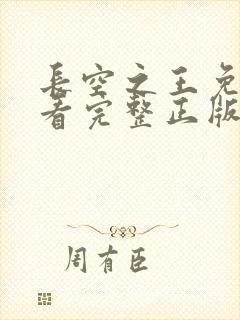 长空之王免
看完整正版
周有臣